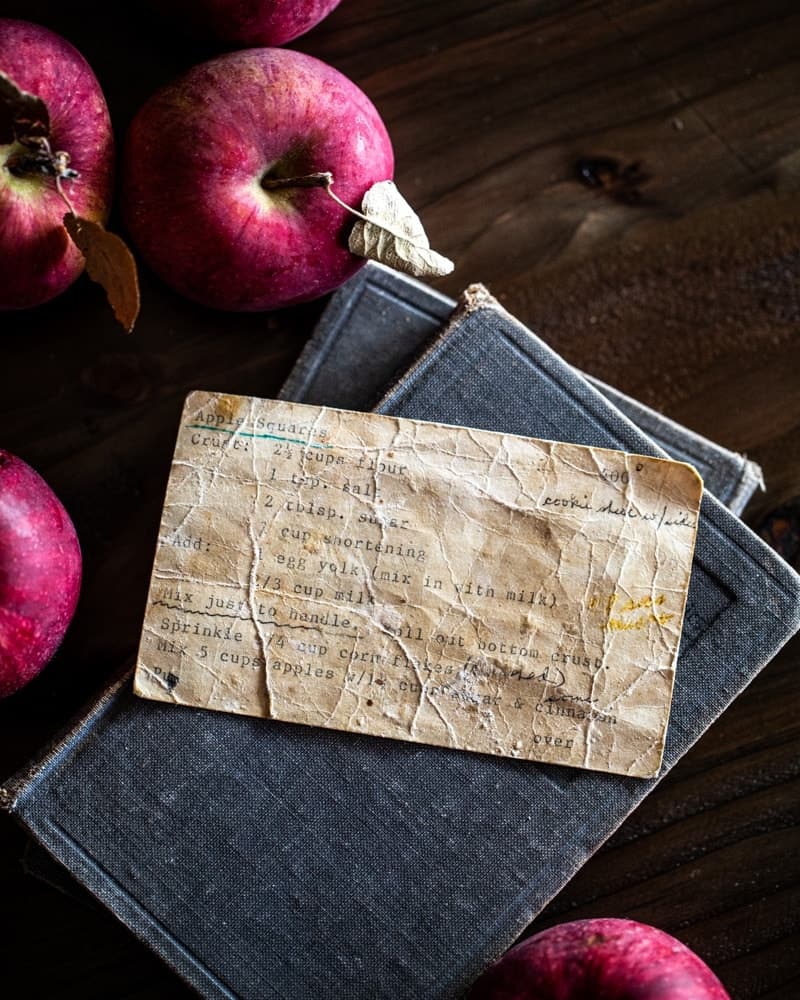 Apple Squares
400°
Crust: 2½ cups flour
cookie sheet w/sides
1 tsp. salt
2 tblsp. sugar
cup shortening
Add: 1 egg yolk (mix in with milk)
/3 cup milk
Mix just to handle. Roll out bottom crust.
Sprinkle /4 cup corn flakes
Mix 5 cups apples w/ cup sugar & cinnamon
over